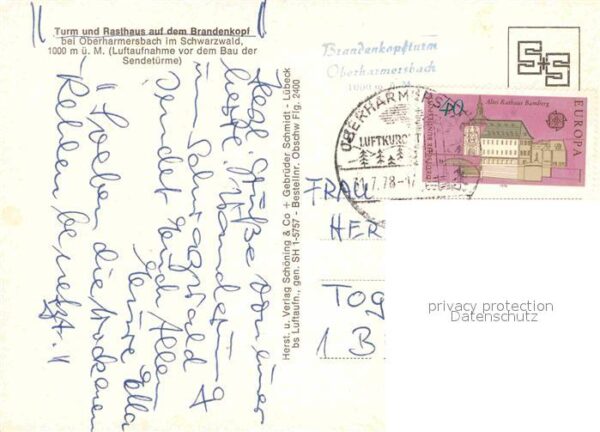 Turm und Rasthaus auf dem Brandenkopf
bei Oberharmersbach im Schwarzwald,
1000 m ü. M. (Luftaufnahme vor dem Bau der
Sendetürme)
Herzl. Grüße von einer
Wanderung
im Schwarzwald
sendet Euch Allen
"Soeben die
Kehlen benetzt."
Herst. u. Verlag Schöning & Co + Gebrüder Schmidt - Lübeck
bs Luftaufn., gen. SH 1-5757 - Bestellnr. Obschw Fig. 2400
Brandenkopfturm
Oberharmersbach
S+S
OBERHARMERSBACH
LUFTKURORT
.7.78-
40
Altes Rathaus Bamberg
EUROPA
DEUTSCHE BUNDESPOST
FRAU
HER
Tog
1 B
privacy protection
Datenschutz